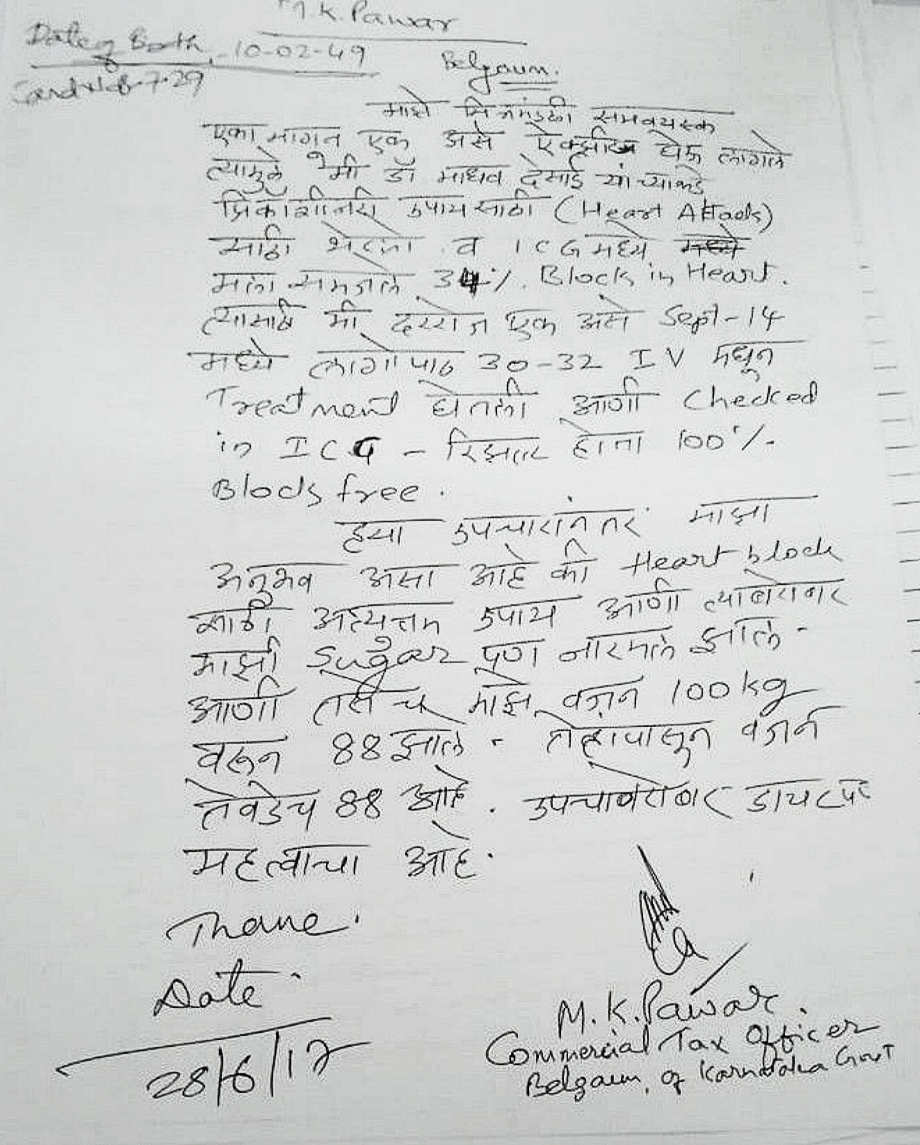 M.K. Pawar
Date of Birth, 10-02-49
Belgaum.
माझे मित्रमंडळी समवयस्क
एका मागन एक असे येऊ लागले
त्यामुळे मी डॉ माधव देसाई यांच्याकडे
उपायसाठी (Heart Attacks)
साठी भेटलो व ICG मध्ये
मला समजले 34%. Block in Heart.
त्यासाठी मी दररोज एक असे Sept-14
मध्ये लागोपाठ 30-32 IV मधून
Treatment घेतली आणी Checked
in ICG - रिझल्ट होता 100%.
Blocks free.
ह्या उपचारांनंतर माझा
अनुभव असा आहे की Heart block
साठी अत्यत्तम उपाय आणी त्याबरोबर
माझी Sugar पूण नारमल झाले.
आणी तसेच माझे वजन 100kg
वरून 88 झाले. तेव्हापासून वजन
तेवडेच 88 आहे. उपचाबरोबर डायट पण
महत्वाचा आहे.
Thane.
Date.
28/6/17
M.K. Pawar.
Commercial Tax Officer
Belgaum, of Karnataka Govt